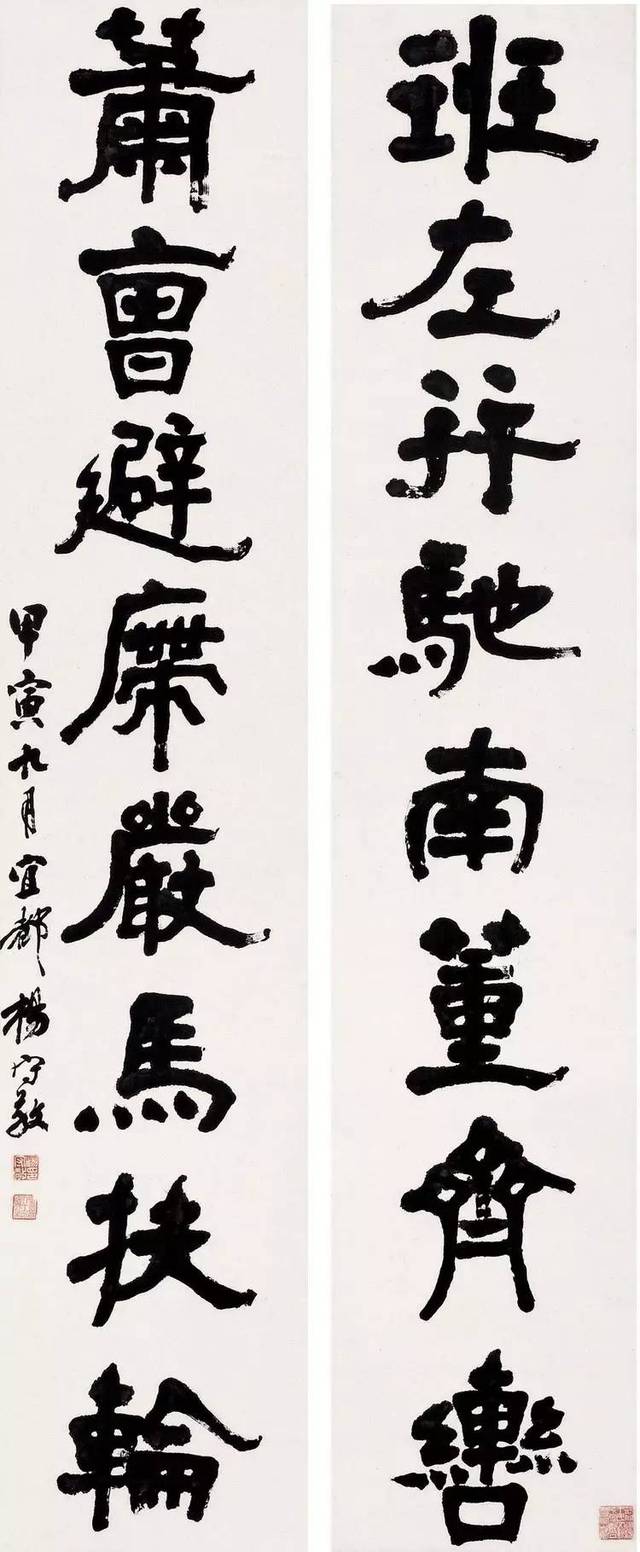 班左并馳南董齊轡
蕭曹避席嚴馬扶輪
甲寅九月宜都楊守敬